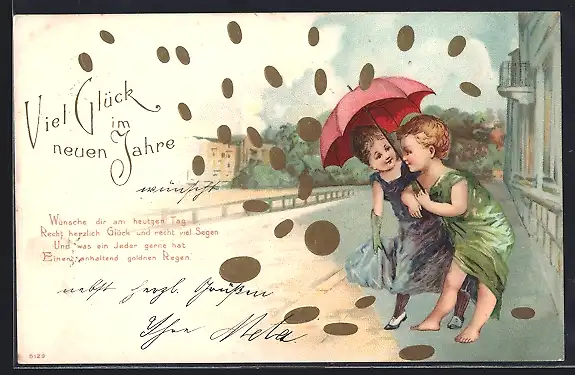 Viel Glück
im
neuen Jahre
wünscht
Wünsche dir am heutgen Tag
Recht herzlich Glück und recht viel Segen
Und was ein Jeder gerne hat
Einen anhaltend goldnen Regen.
nebst herzl. Grüßen
Ihre Meta
5123